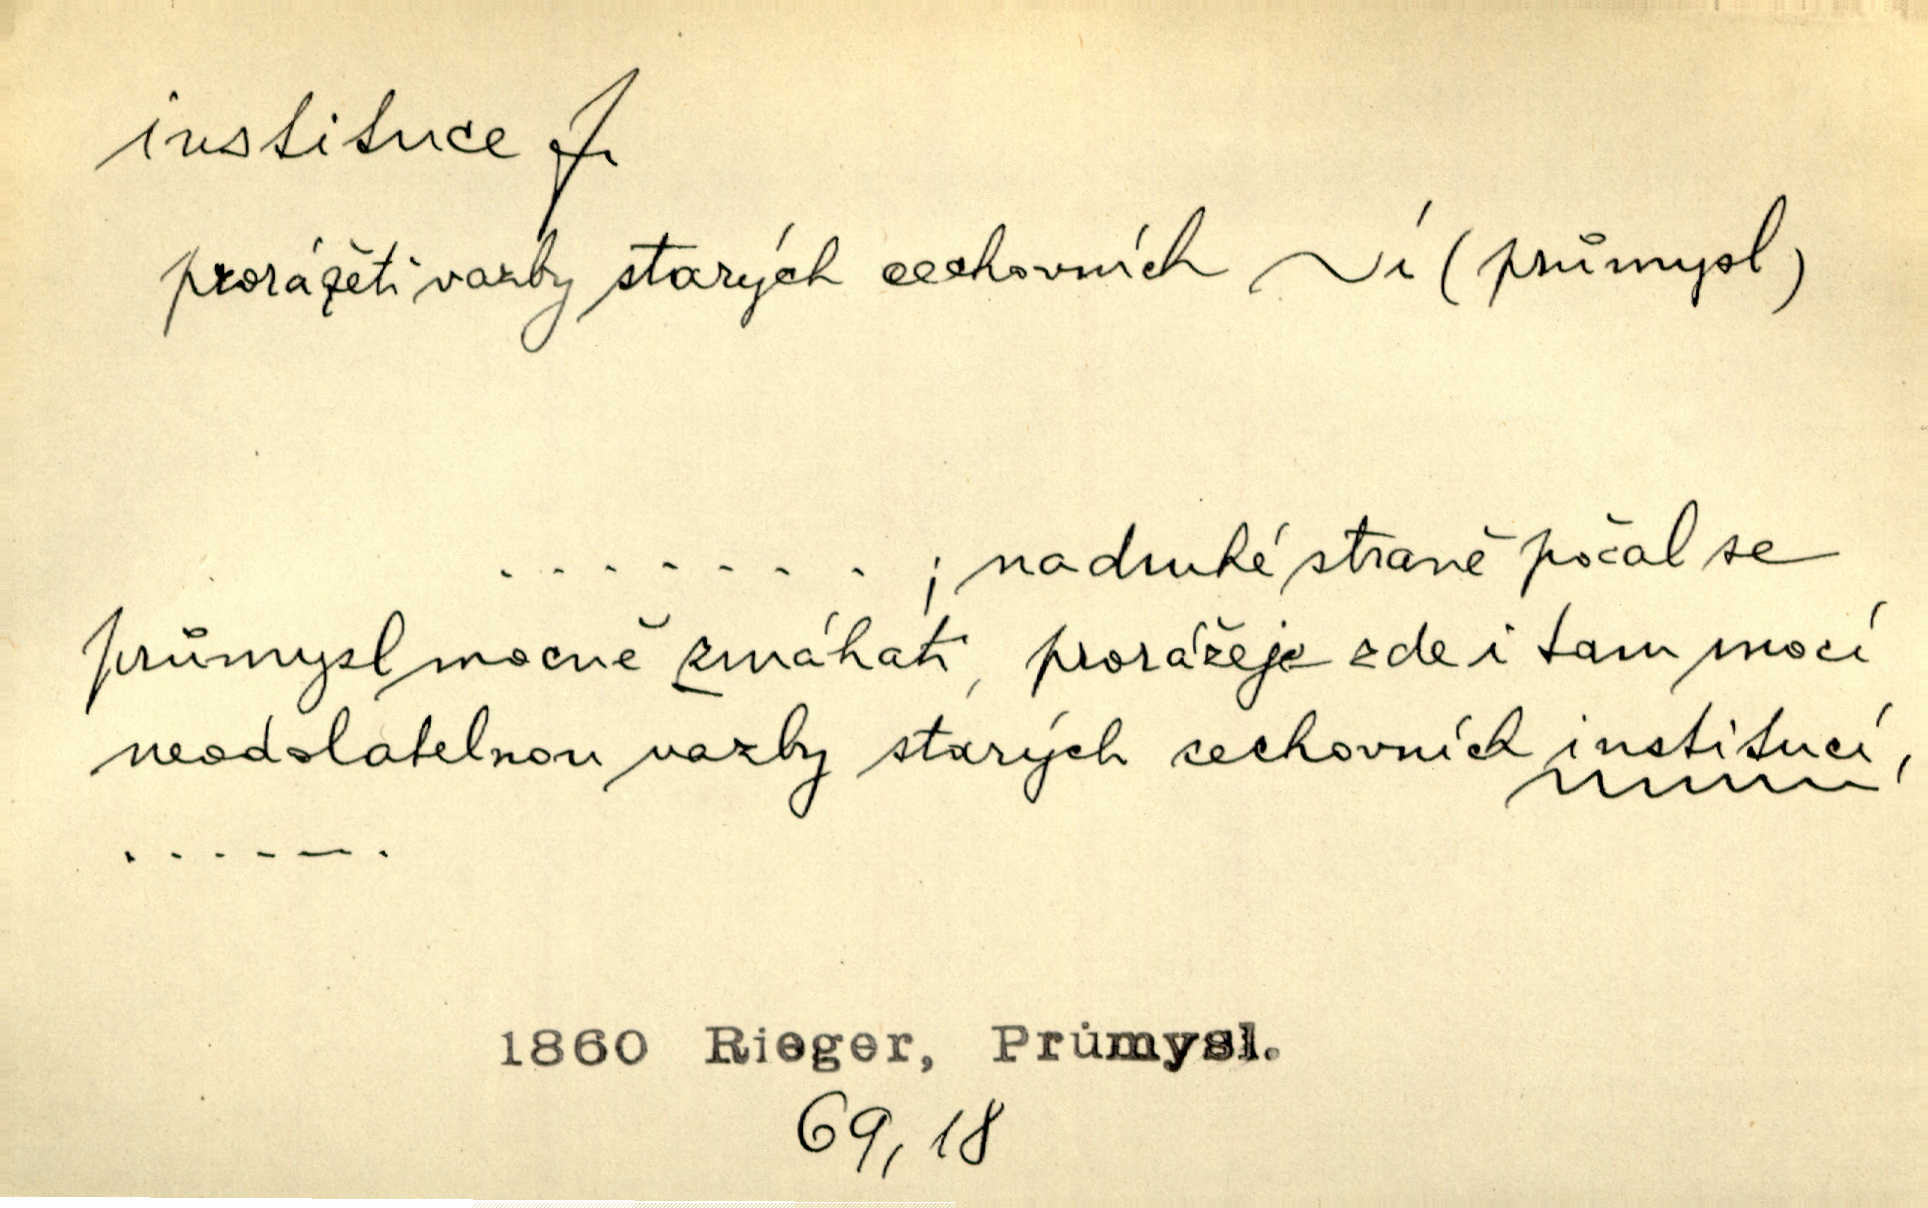 instituce f.
prorážeti vazby starých cechovních ~í (průmysl)
........; na druhé straně počal se
průmysl mocně zmáhati, prorážeje zde i tam mocí
neodolatelnou vazby starých cechovních institucí,
.......
1860 Rieger, Průmysl.
69,18